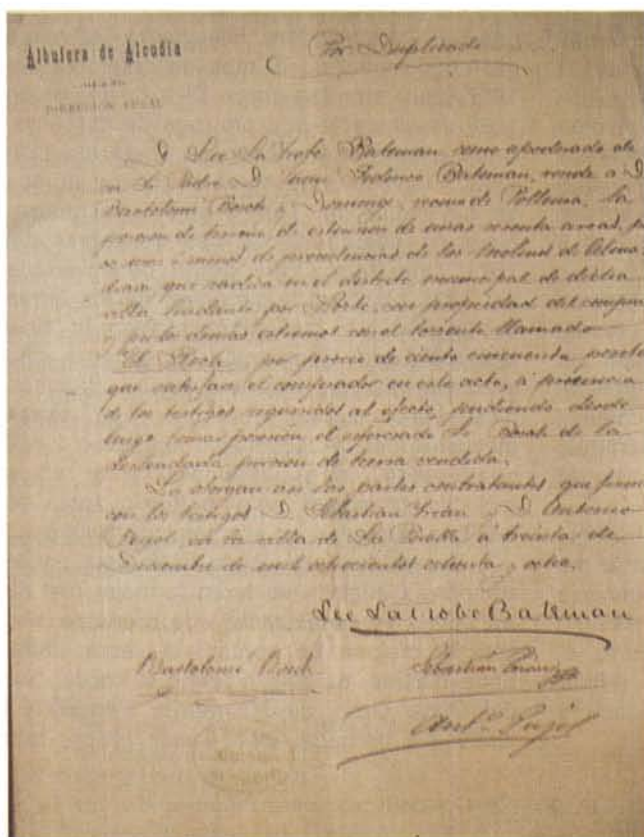 Albufera de Alcudia
Por Duplicado
DIRECCION LOCAL
D. Lee La Trobe Bateman como apoderado de
su Sr. Padre D. Federico Bateman, vende a D.
Bartolomé Bosch y Domenge, vecino de Pollensa, la
porcion de terreno de estension de unas noventa areas,
ó menos de procedencias de los
que radica en el distrito municipal de dicha
villa lindante por Norte, con propiedad del
y por lo demas estremos con el torrente llamado
por precio de ciento cincuenta
que satisface el comprador en este acto, á presencia
de los testigos requeridos al efecto, pudiendo desde
luego tomar posesión el espresado Sr. Bosch de la
deslindada porcion de tierra vendida.
Lo otorgan asi las partes contratantes que
con los testigos D. Sebastian y D. Antonio
Pujol en la villa de La Puebla á treinta de
de mil ochocientos ochenta y ocho.
Lee LaTrobe Bateman
Bartolomé Bosch
Sebastian
Antº Pujol